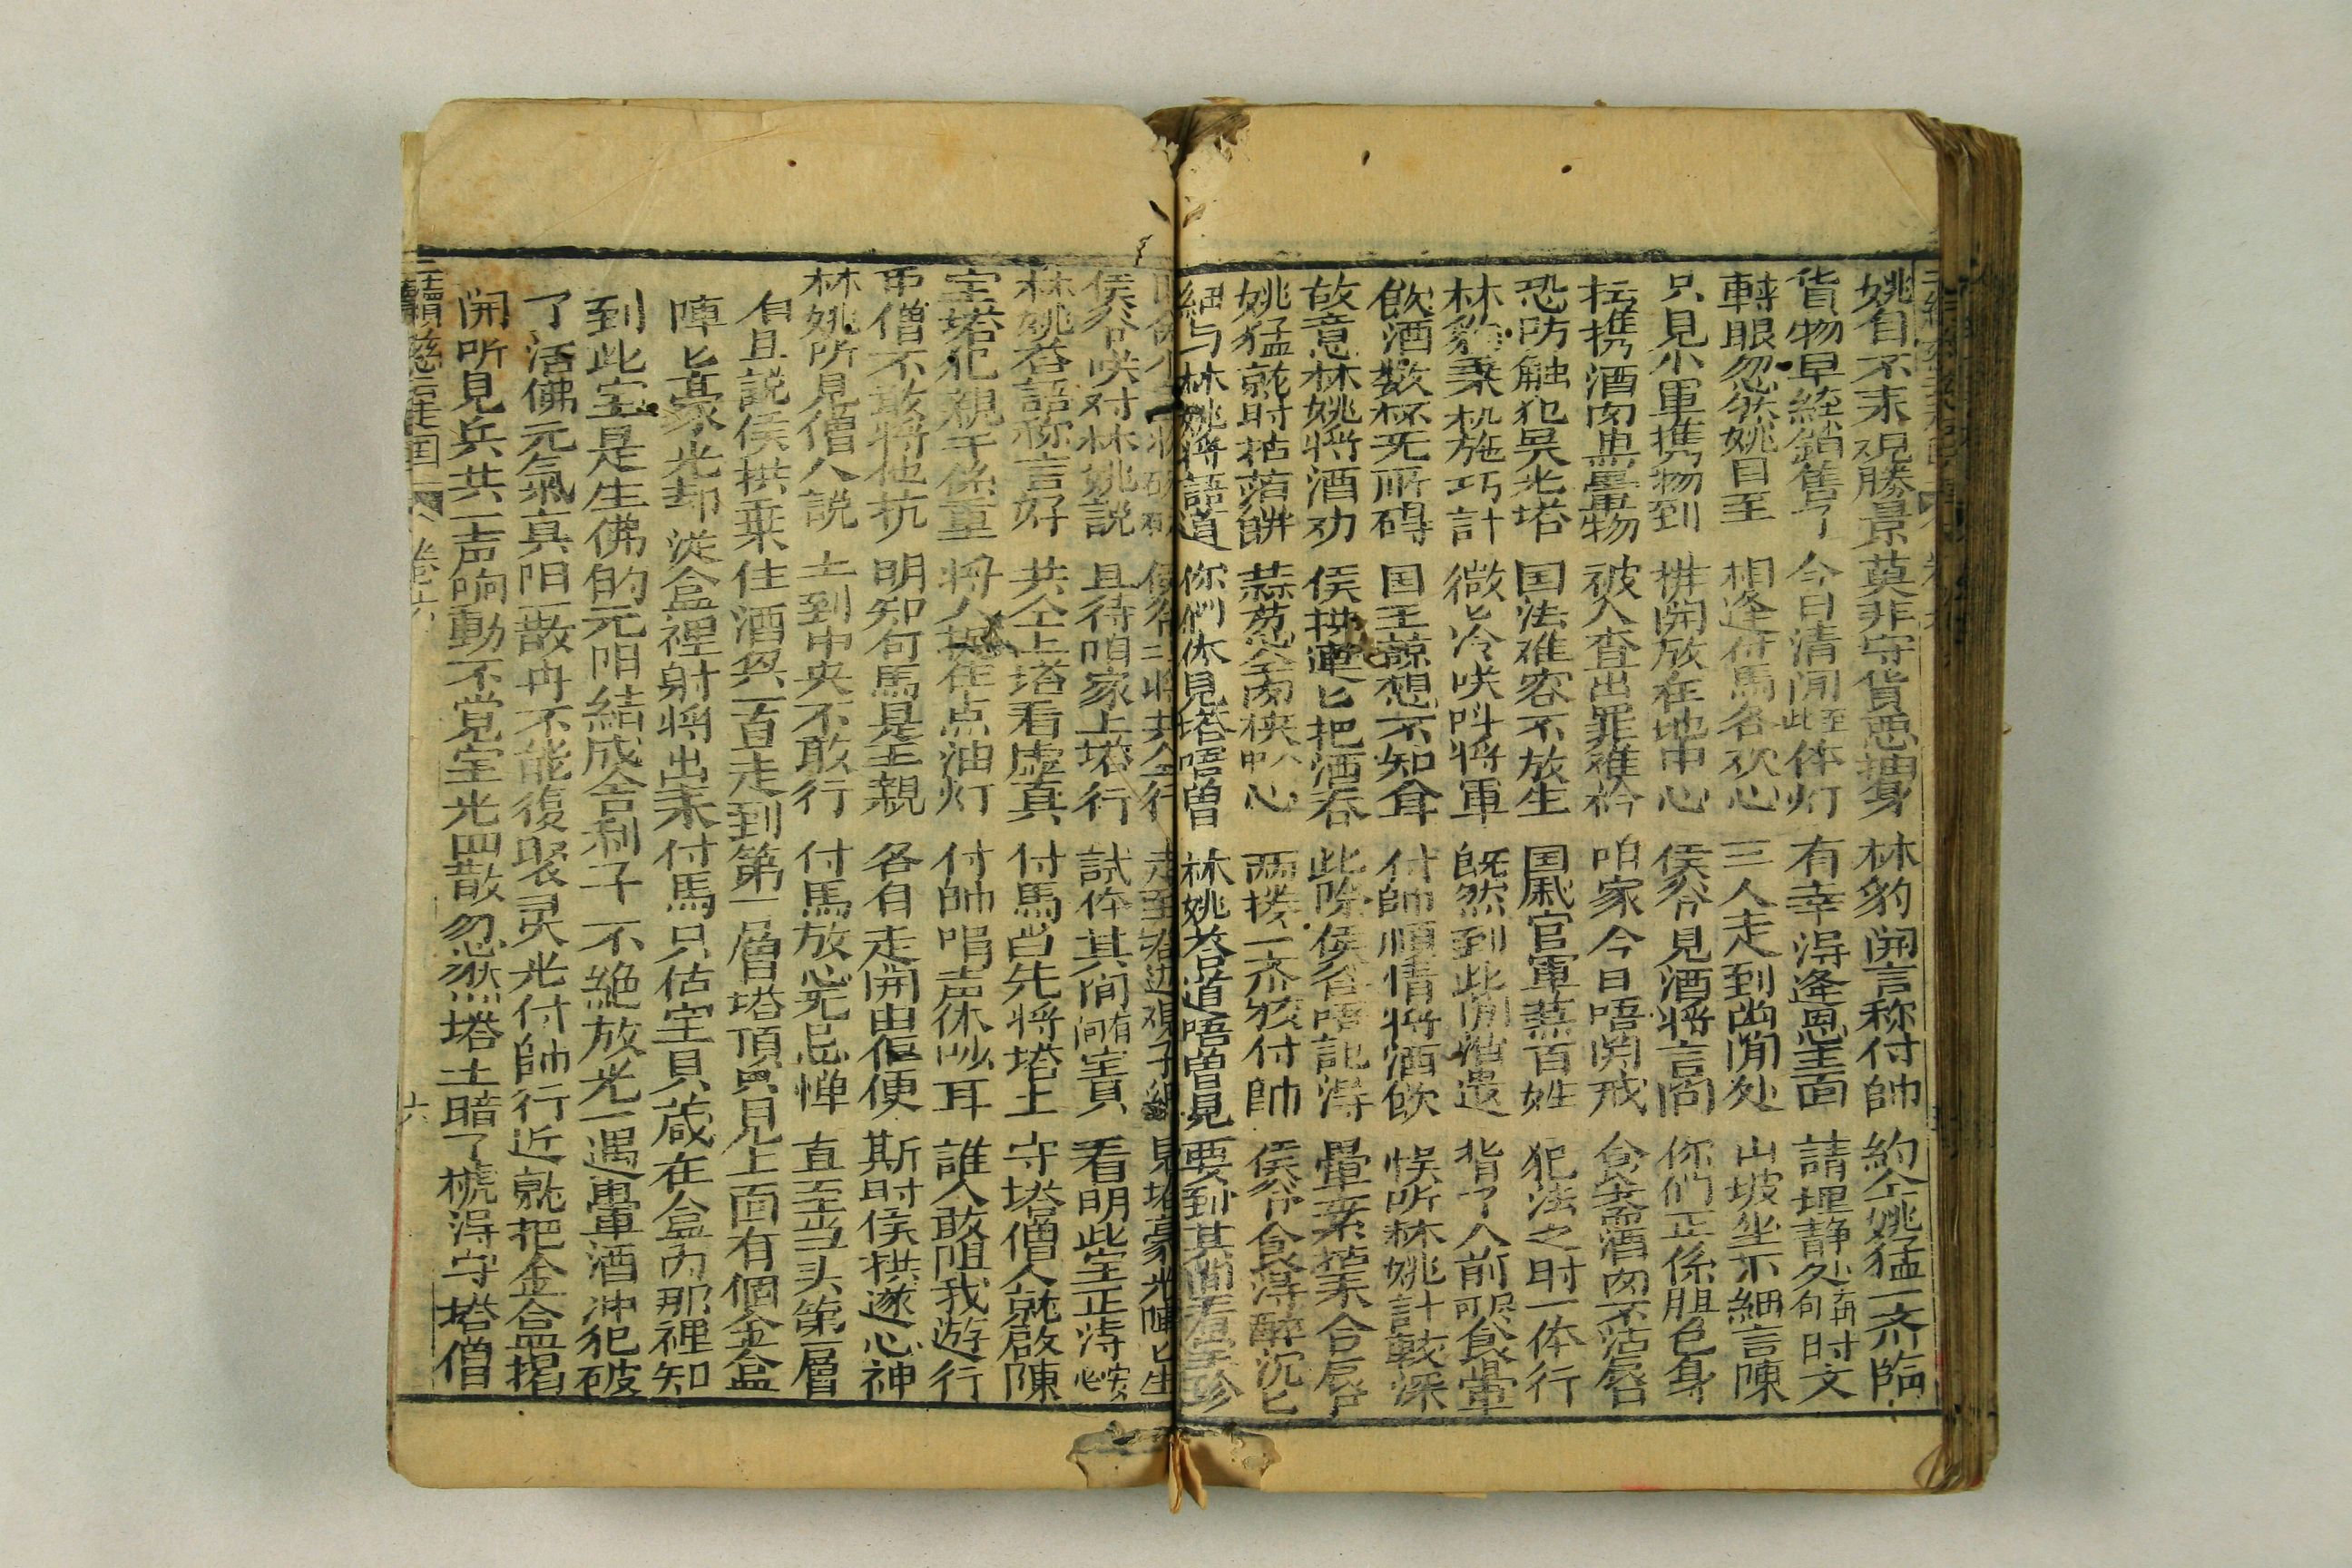 姚自不来观勝景 莫非守貨悪抽身 林豹開言称付帥 約仝姚猛一齐臨
貨物早経銷售了 今日清閒至此体灯 有幸淂逢恩主面 請埋静处再句時文
轉眼忽然姚目至 相逢付馬各欢心 三人走到幽閒处 山坡坐下細言陳
只見小軍携物到 排開放在地中心 侯答見酒将言問 你們正係胆包身
抂携酒肉與葷物 被人查出罪难衿 咱家今日唔開戒 食斋酒肉不沾唇
恐防触犯吳光塔 国法难容不放生 国戚官軍無百姓 犯法之时一体行
林豹乘机施巧計 微匕冷咲呌将軍 既然到此閒消遣 背了人前可尽食葷
飲酒数杯无所碍 国王諒想不知耳 付帥順情将酒飲 悮听林姚計較深
故意林姚将酒劝 侯拱連匕把酒吞 此际侯答唔記淂 葷素拈来合唇
姚猛就时拈蒞餅 蒜葱全肉挾中心 两拨一齐殽付帥 侯答食淂醉沉匕
細与林姚将語道 你們休見塔唔曽 林姚答道唔曽見 要到其間看宝珍
侯答二将共仝行 走至塔边观子細 見塔豪光陣匕生
侯答咲对林姚説 且待咱家上塔行 試伂其間有何宝貝 看明此宝正淂安心
林姚答語称言好 共仝上塔看虚真 付馬当先将塔上 守塔僧人就啟陳
宝塔犯親干係重 将人执在点油灯 付帥喝声休吵耳 誰人敢阻我遊行
軍僧不敢将他抗 明知句馬是王親 各自走開由佢便 斯时侯拱遂心神
林姚所見僧人説 上到中央不敢行 付馬放心无忌惮 直至当头第一層
有且説侯拱乗住酒興一直走到第一層塔頂只見上面有個金盒
陣匕毫光却從盒裡射将出来付馬只估宝貝蔵在盒內那裡知
到此宝是生佛的元阳結成舍利子不絶放光一遇葷酒冲犯破
了活佛元氣真阳一散冉不能復聚灵光付帥行近就把金盒揭
開听見兵共一声响動不觉宝光四散忽然塔上暗了㨪淂守塔僧
卷六
六